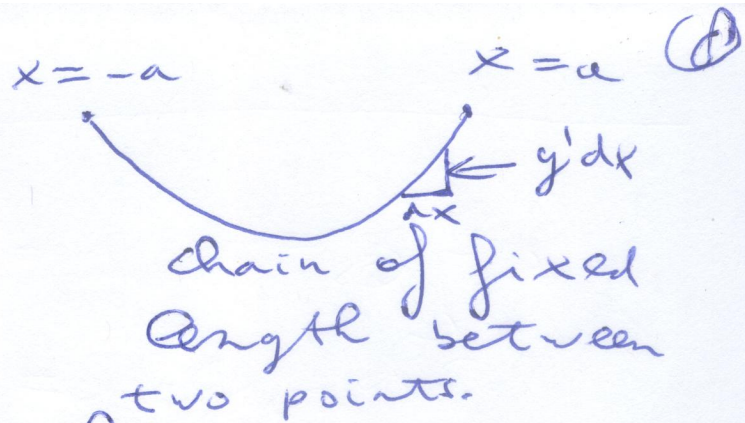 x = -a
x = a
y'dx
dx
chain of fixed
length between
two points.